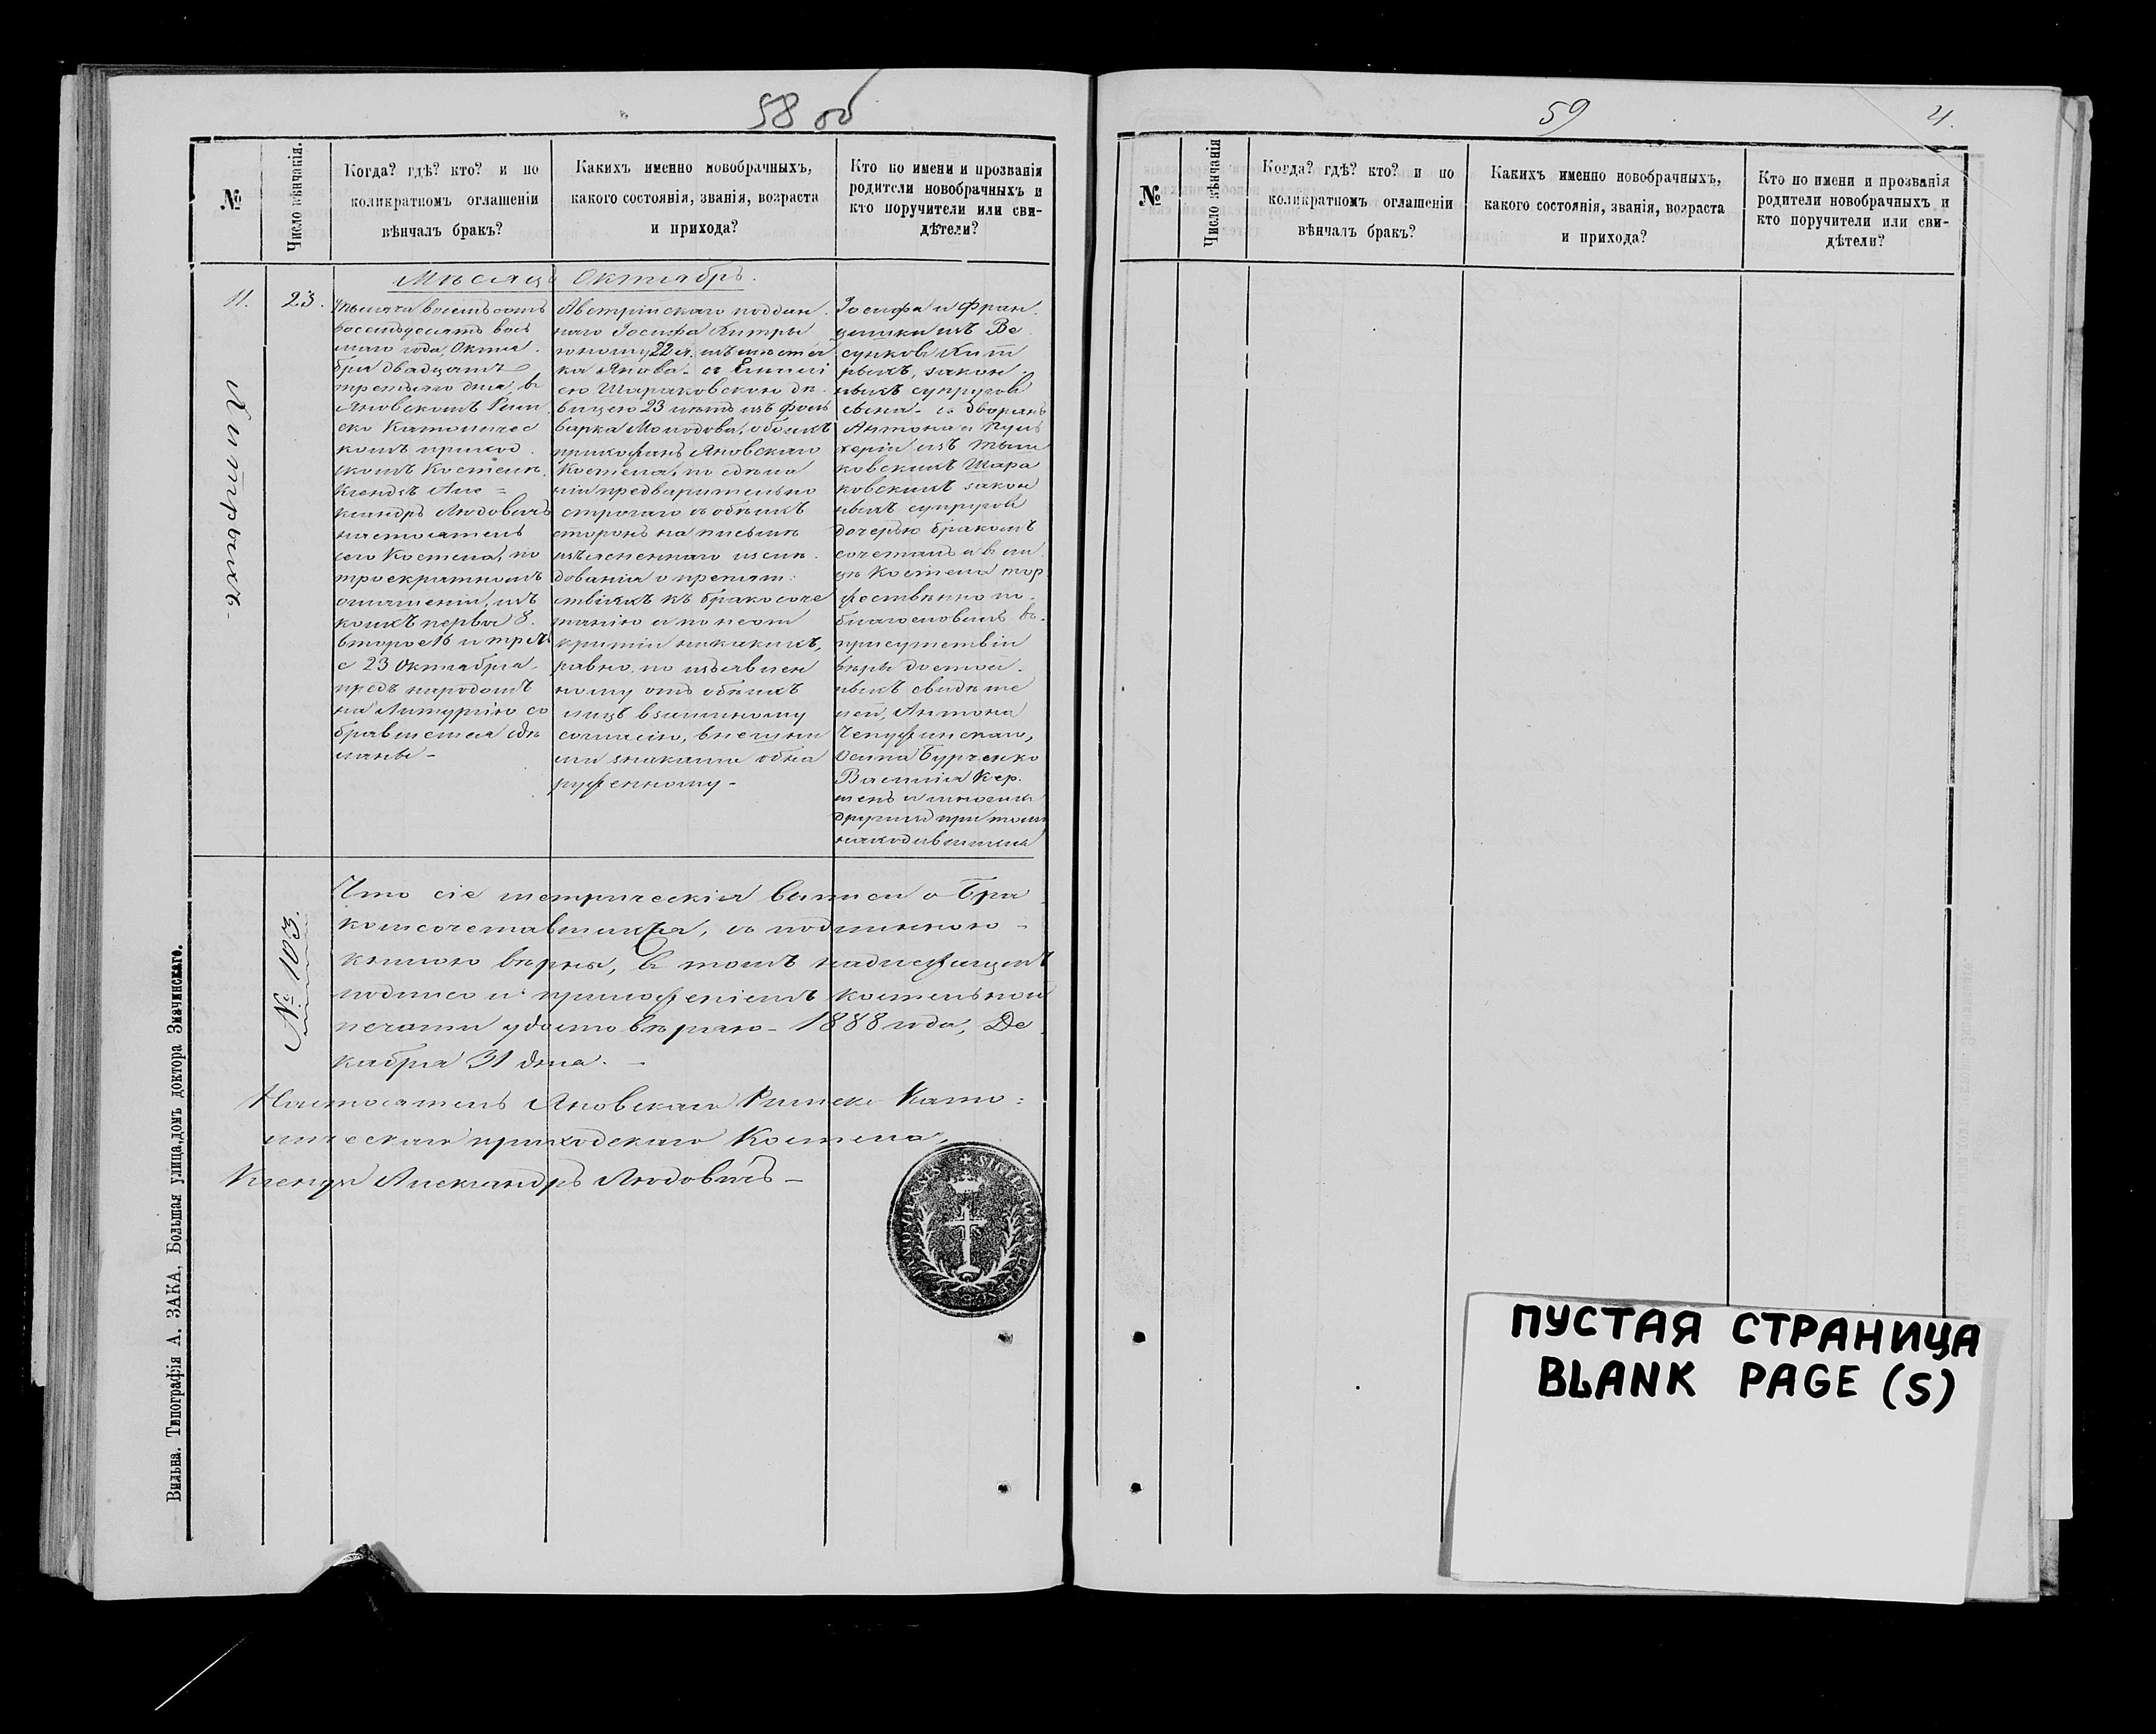 58 об
№
Число вѣнчанія.
Когда? гдѣ? кто? и по
коликратномъ оглашеніи
вѣнчалъ бракъ?
Какихъ именно новобрачныхъ,
какого состоянія, званія, возраста
и прихода?
Кто по имени и прозванія
родители новобрачныхъ и
кто поручители или сви-
дѣтели?
Мѣсяцъ Октябрь.
11.
23.
Тысяча восемьсотъ
восемьдесятъ вось
маго года, Октя
бря двадцать
третьяго дня, въ
Яновскомъ Рим
ско Католичес
комъ приход
скомъ Костелѣ,
Ксендзъ Але =
ксандръ Людовичъ
настоятель
сего Костела, по
троекратномъ
оглашеніи, изъ
коихъ первое 8.
второе 15 и треть
е 23 Октября,
предъ народомъ
на Литургію со
бравшемся сдѣ
ланы -
Австрійскаго поддан
наго Іосифа Хитры
юношу 22 л. изъ мѣстеч
ка Янова - съ Емилі
ею Шараковскою дѣ
вицею 23 лѣтъ изъ фоль
варка Молодова, обоихъ
прихожанъ Яновскаго
Костела, по сдѣла
ніи предварительно
строгаго съ обѣихъ
сторонъ на письмѣ
изъясненнаго изслѣ
дованія о препят:
ствіяхъ къ бракосоче
танію и по неот
крытіи никакихъ,
равно, по изъявлен
ному отъ обѣихъ
лицъ взаимному
согласію, внешни
ми знаками обна
руженному -
Іосифа и Фран
цишки изъ Ве
сунковъ Хит
рыхъ, закон
ныхъ супруговъ
сына - съ дворянъ
Антона и Пуль
херіи изъ Тыш
ковскихъ Шара
ковскихъ закон
ныхъ супруговъ
дочерью бракомъ
сочеталъ и въ ли
цѣ Костела тор
жественно по
благословилъ въ
присутствіи
вѣры достой
ныхъ свидѣте
лей, Антона
Осипа Бурченко
Василія Кер
шенъ и многихъ
другихъ при томъ
находившихся
Хитрыхъ -
№ 103.
Что сіе метрическія выписи о Бра
комсочетавшихся, съ подлинною -
книгою вѣрны, въ томъ надлежащимъ
подписо и приложеніемъ костельной
печати удостовѣряю - 1888 года, Де
кабря 31 дня. -
Настоятель Яновскаго Римско Като:
лическаго приходскаго Костела,
Ксендзъ Александръ Людовичъ -
Вильна. Типографія А. ЗАКА, Большая улица, домъ доктора Значинскаго.
59
4.
№
Число вѣнчанія
Когда? гдѣ? кто? и по
коликратномъ оглашеніи
вѣнчалъ бракъ?
Какихъ именно новобрачныхъ,
какого состоянія, званія, возраста
и прихода?
Кто по имени и прозванія
родители новобрачныхъ и
кто поручители или сви-
дѣтели?
ПУСТАЯ СТРАНИЦА
BLANK PAGE (S)